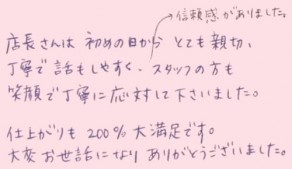 信頼感がありました。
店長さんは 初めの日から とても親切、
丁寧で話もしやすく、スタッフの方も
笑顔で丁寧に応対して下さいました。
仕上がりも 200% 大満足です。
大変お世話になり ありがとうございました。